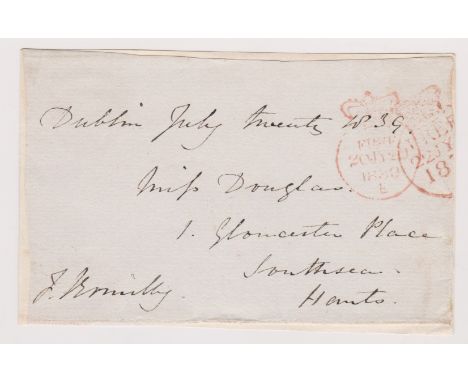 Dublin July twenty 1839
Miss Douglas.
1. Gloucester Place
Southsea.
Hants.
J. Romilly.
20 JY 20
1839
E
22 JY
18